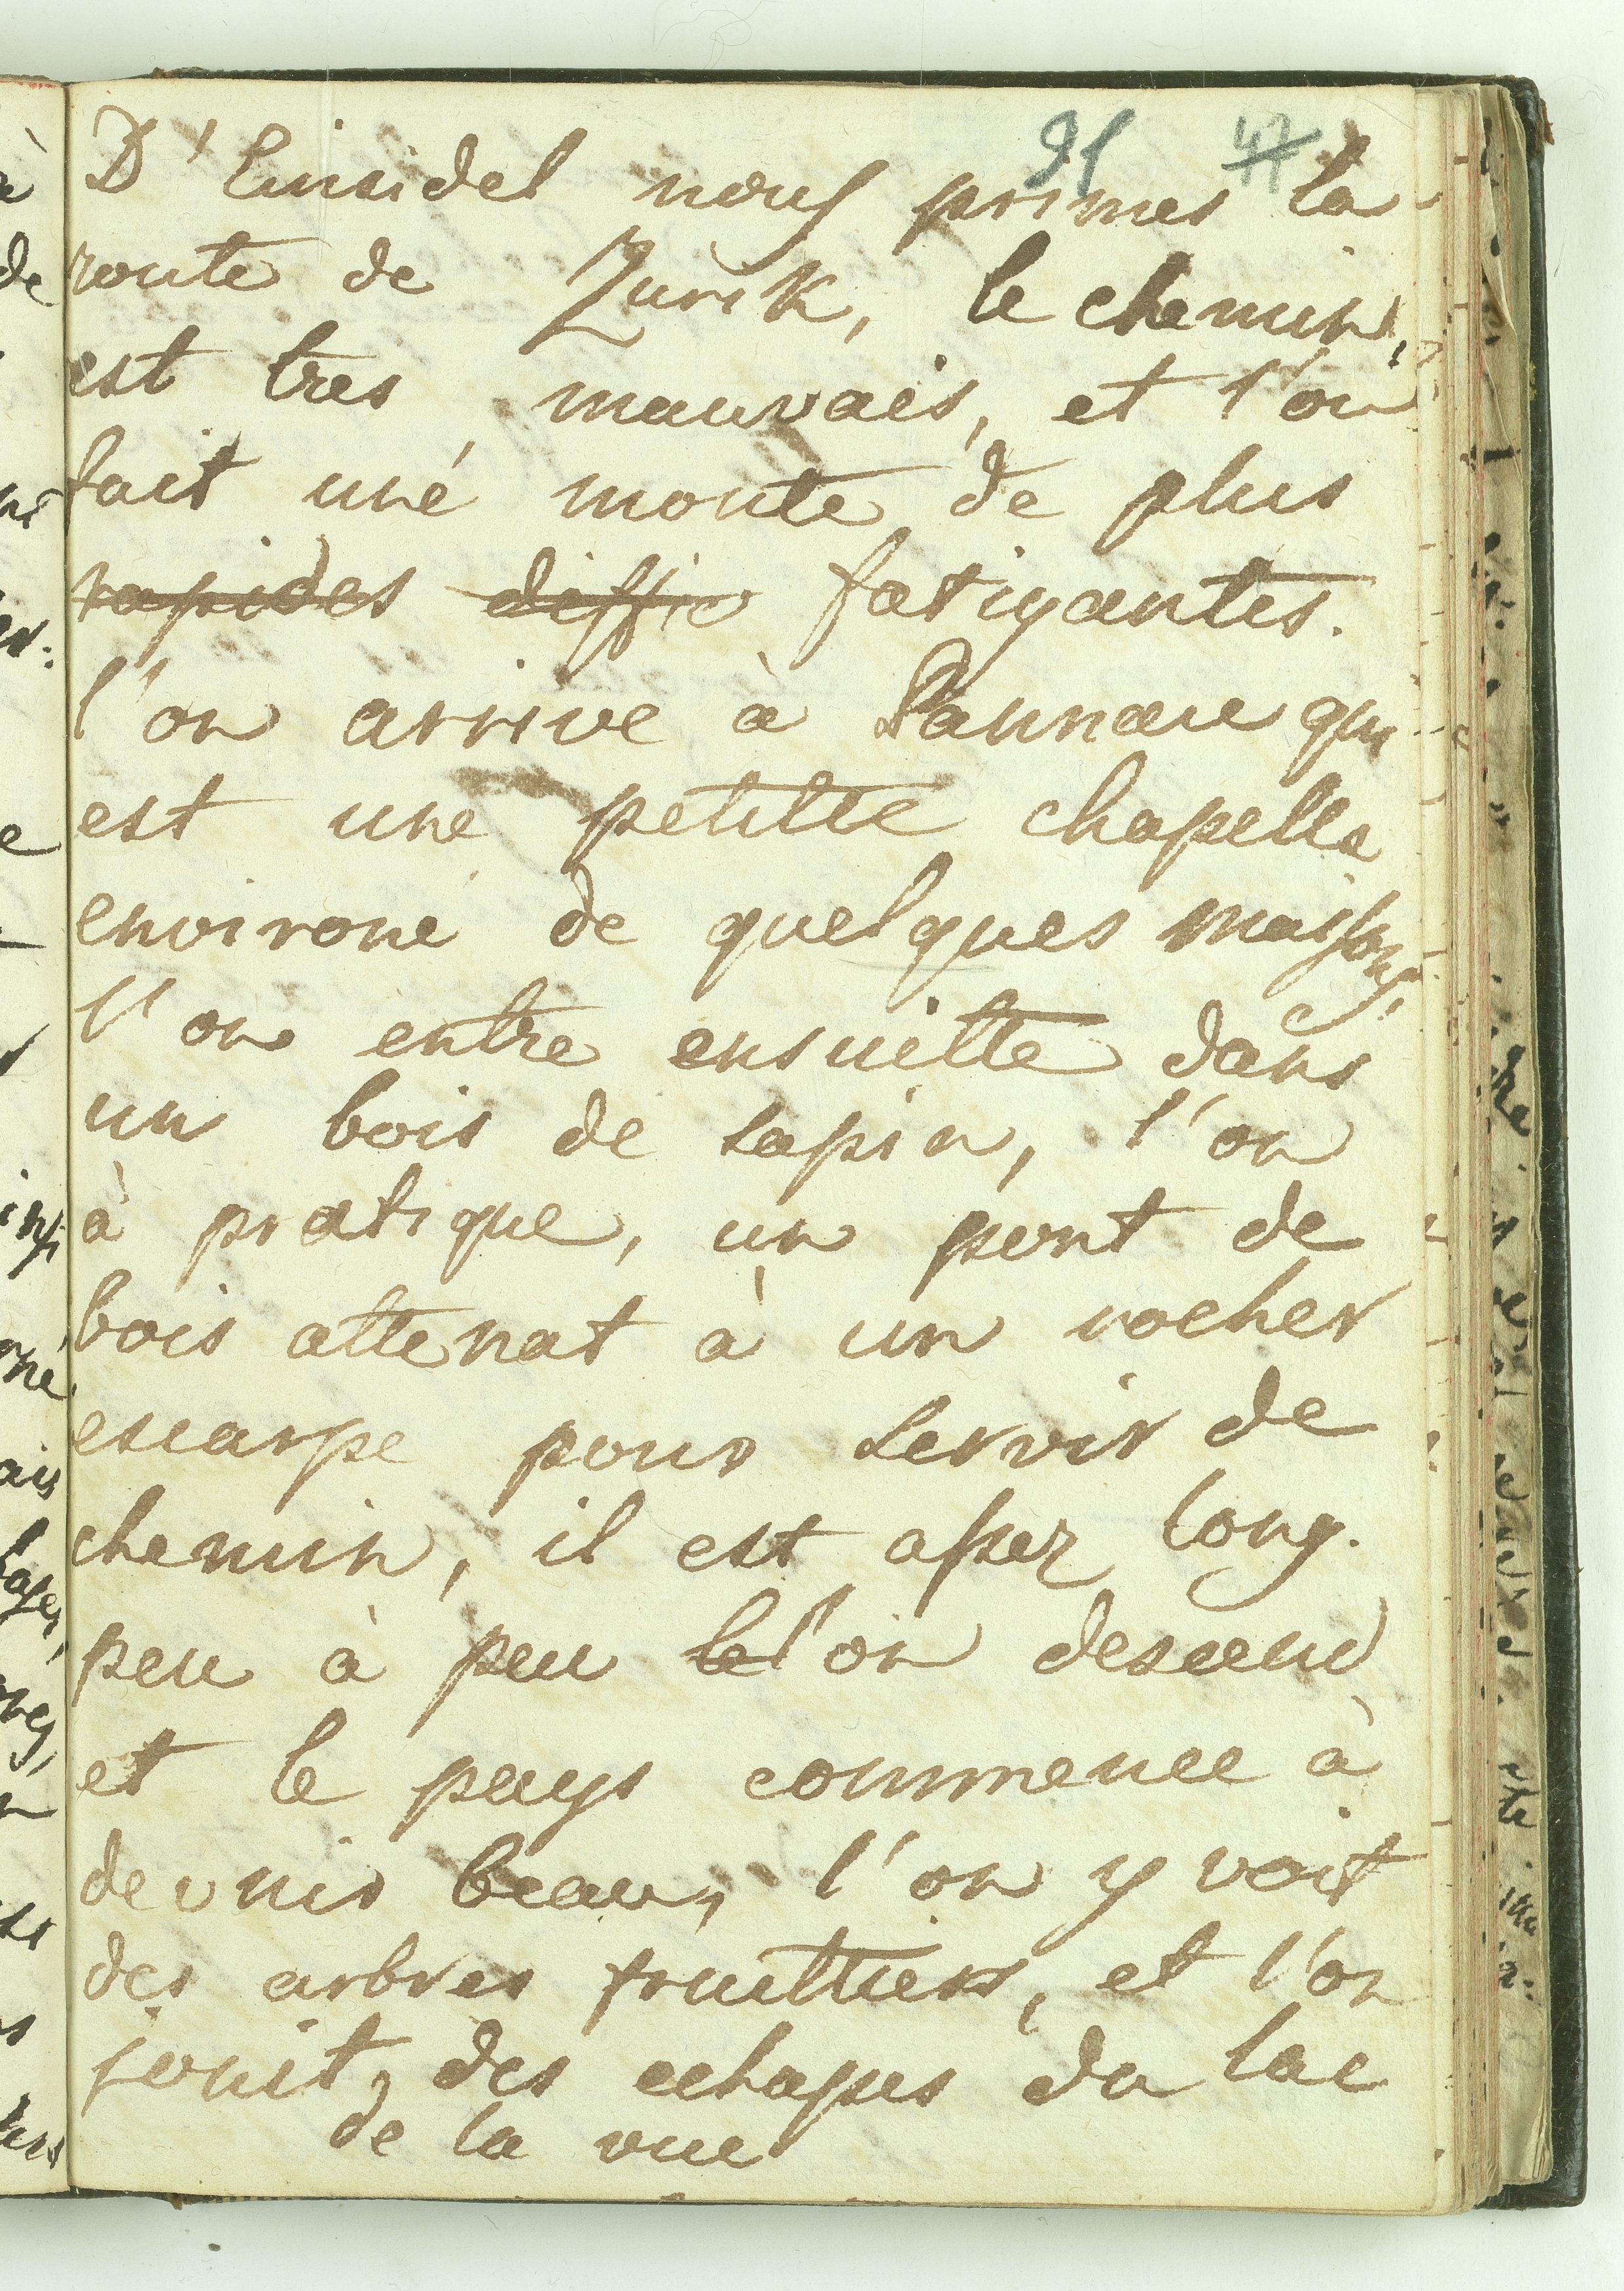 91 47
D'Einsidel nous primes la
route de Zurik, le chemin,
est tres mauvais, et l'on
fait uné monté de plus
rapides diffic fatigantes.
l'on arrive à Pannaue qui
est une petitte chapelle
environé de quelques maisons,
l'on entre ensuitte dans
un bois de sapin, l'on
à pratique, un pont de
bois attenat à un rocher
escarpe pour servir de
chemin, il est assez long.
peu à peu le l'on descend
et le pays commence à
devnir beau, l'on y voit
des arbres fruittiers, et l'on
jouit, des echapes du lac
de la vue